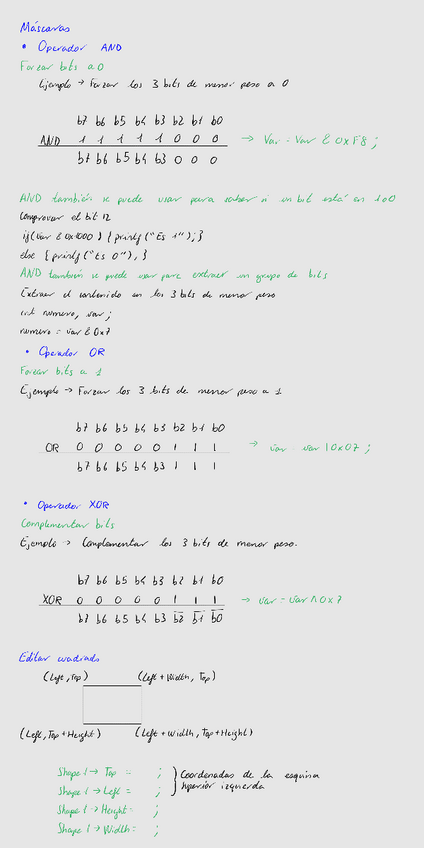 Máscaras
• Operador AND
Forzar bits a 0
Ejemplo → Forzar los 3 bits de menor peso a 0
b7 b6 b5 b4 b3 b2 b1 b0
AND 1 1 1 1 1 0 0 0 → Var = Var & 0xF8 ;
b7 b6 b5 b4 b3 0 0 0
AND también se puede usar para saber si un bit está en 1 o 0
Comprovar el bit 12
if(var & 0x1000 ) { printf ("Es 1"); }
else { printf ("Es 0"); }
AND también se puede usar para extraer un grupo de bits
Extraer el contenido en los 3 bits de menor peso
int numero, var ;
numero = var & 0x7
• Operador OR
Forzar bits a 1
Ejemplo → Forzar los 3 bits de menor peso a 1
b7 b6 b5 b4 b3 b2 b1 b0
OR 0 0 0 0 0 1 1 1 → var = var | 0x07 ;
b7 b6 b5 b4 b3 1 1 1
• Operador XOR
Complementar bits
Ejemplo → Complementar los 3 bits de menor peso.
b7 b6 b5 b4 b3 b2 b1 b0
XOR 0 0 0 0 0 1 1 1 → var = var ^ 0x7
b7 b6 b5 b4 b3 b̅2̅ b̅1̅ b̅0̅
Editar cuadrado
(Left, Top) (Left + Width, Top)
(Left, Top + Height) (Left + Width, Top + Height)
Shape 1 → Top = ; } Coordenadas de la esquina
Shape 1 → Left = ; superior izquierda
Shape 1 → Height = ;
Shape 1 → Width = ;